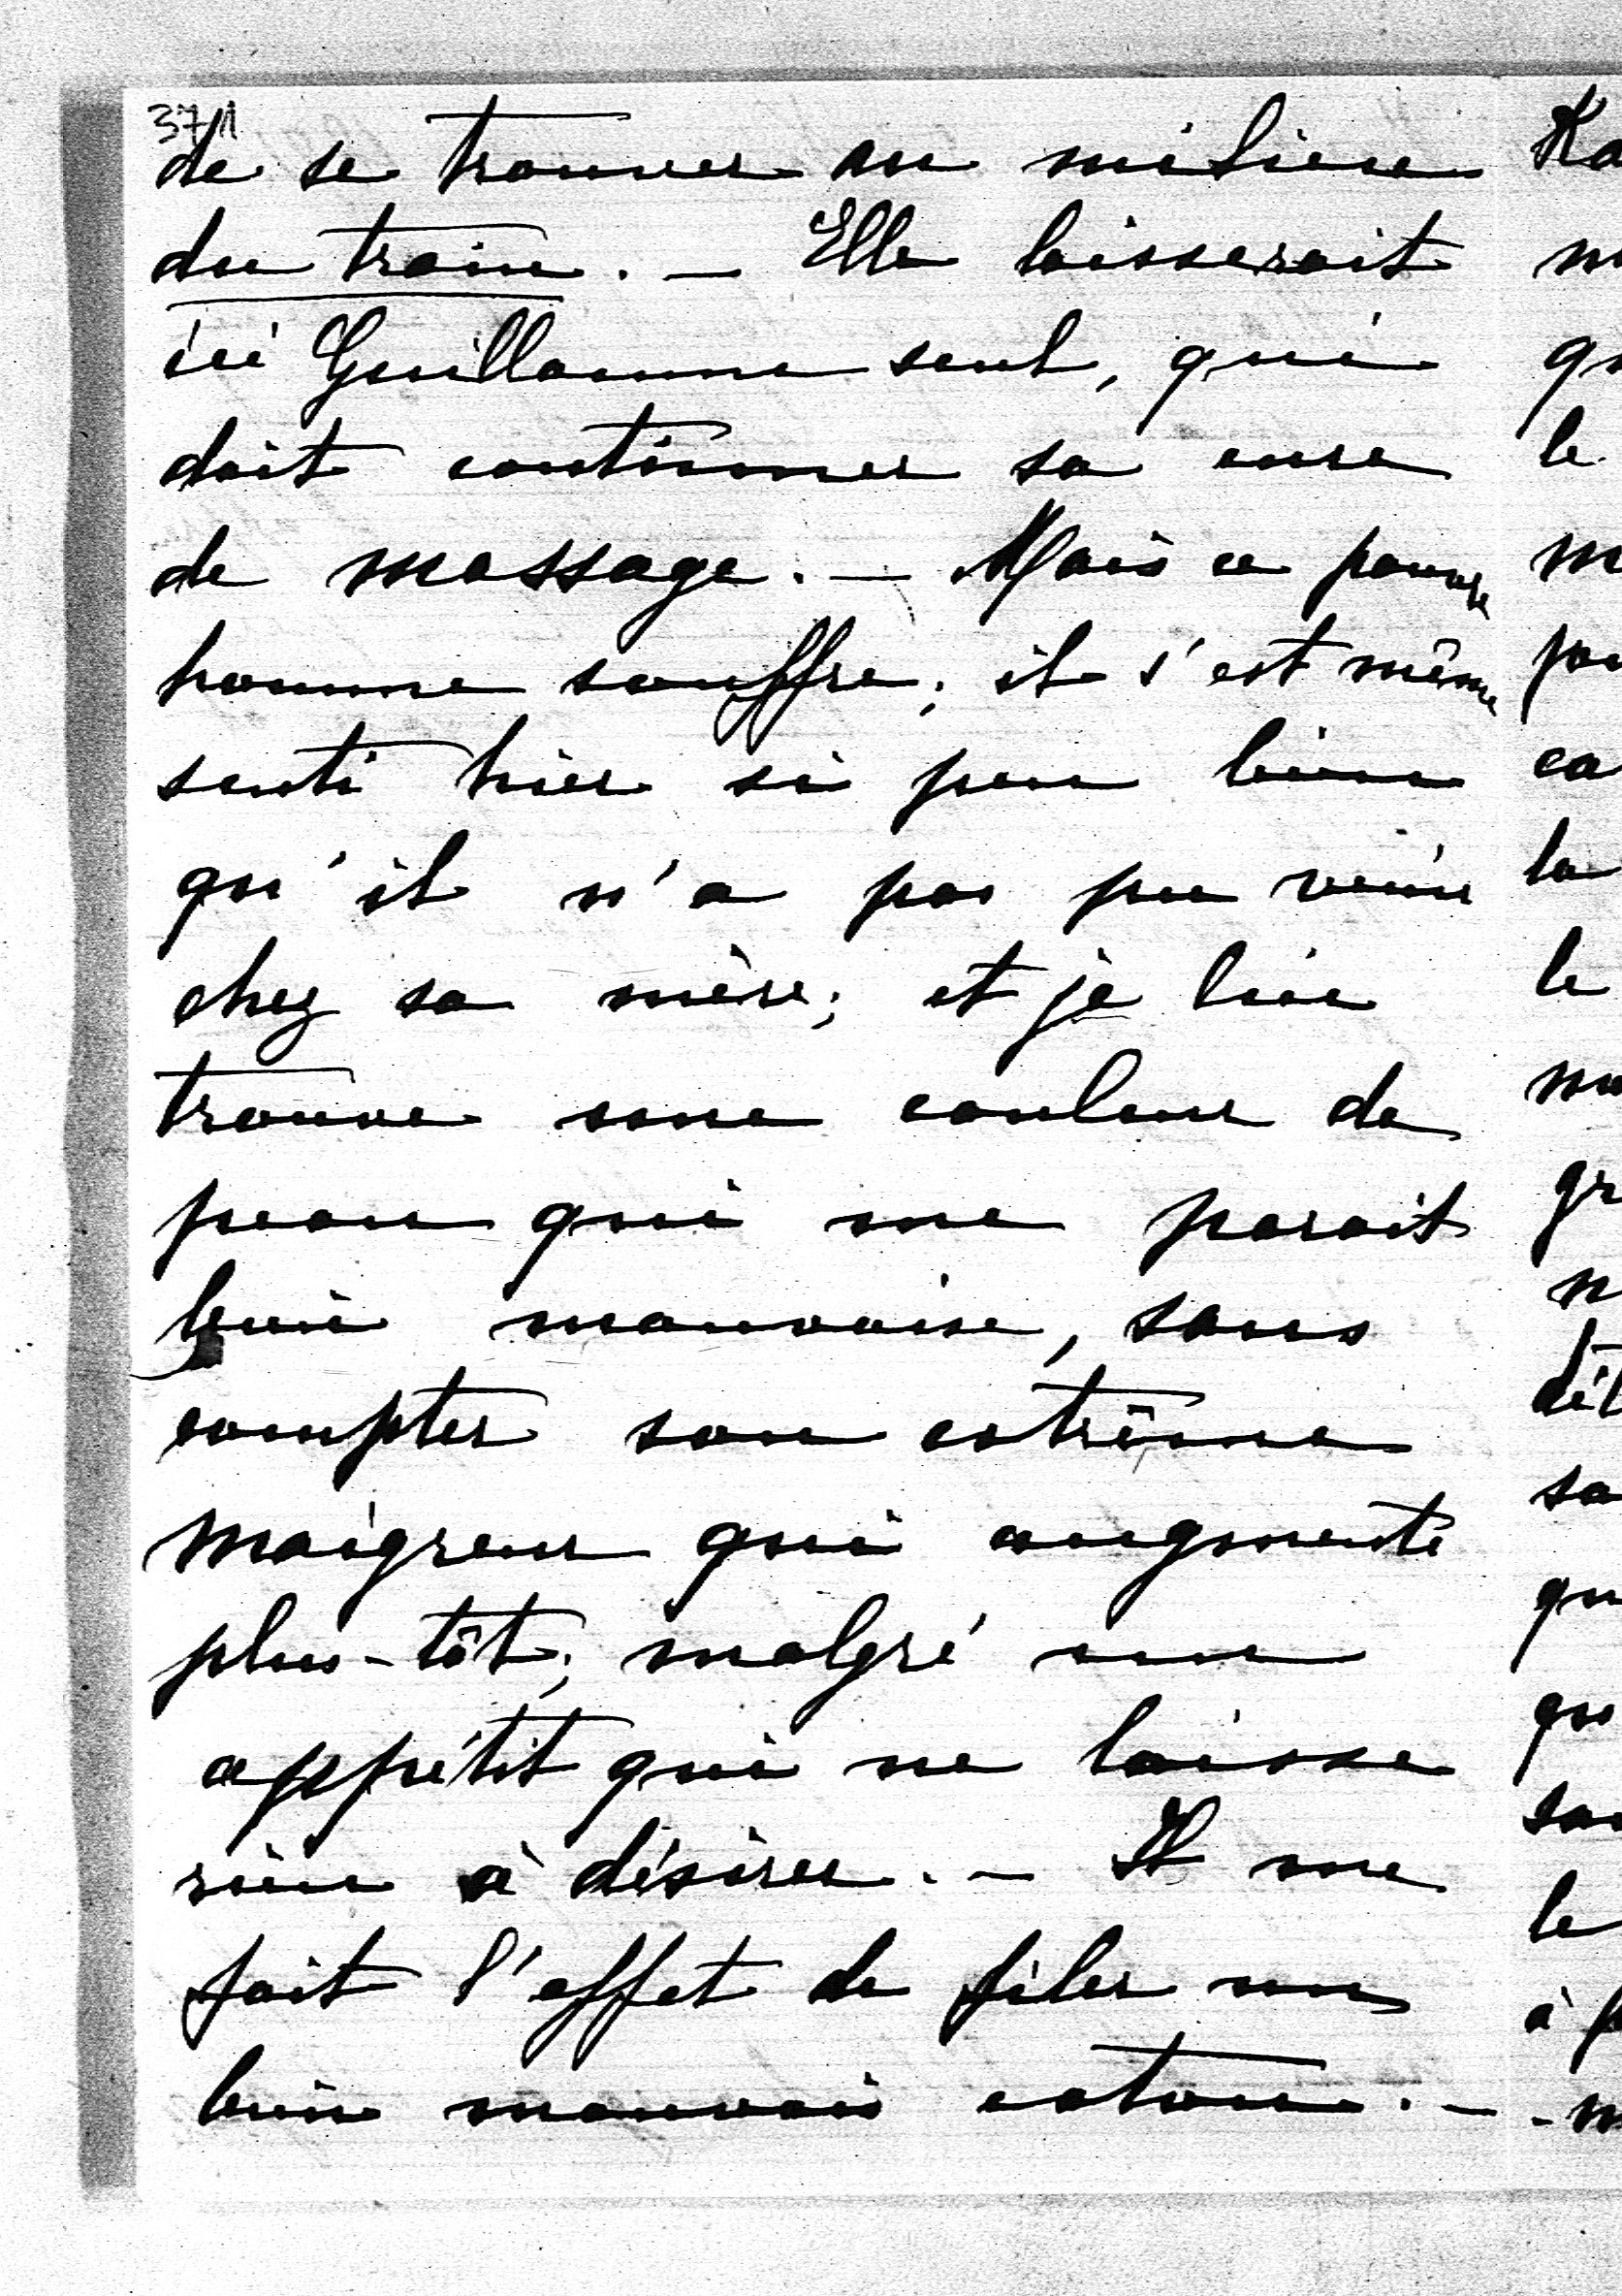 37/1
de se trouver au milieu
du train. — Elle laisserait
ici Guillaume seul, qui
doit continuer sa cure
de massage. — Mais ce pauvre
homme souffre; il s'est même
senti hier si peu bien
qu'il n'a pas pu venir
chez sa mère; et je lui
trouve une couleur de
peau qui me parait
bien mauvaise, sans
compter son extrême
maigreur qui augmente
plus-tôt; malgré un
appétit qui ne laisse
rien à désirer. — Il me
fait l'effet de filer un
bien mauvais coton. —